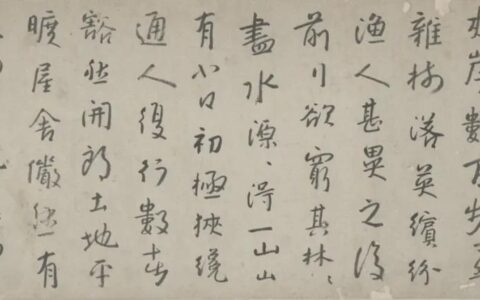 夾岸數百步
雜樹落英繽紛
漁人甚異之復
前行欲窮其林〻
盡水源〻得一山山
有小口初極狹纔
通人復行數十步
豁然開朗土地平
曠屋舍儼然有